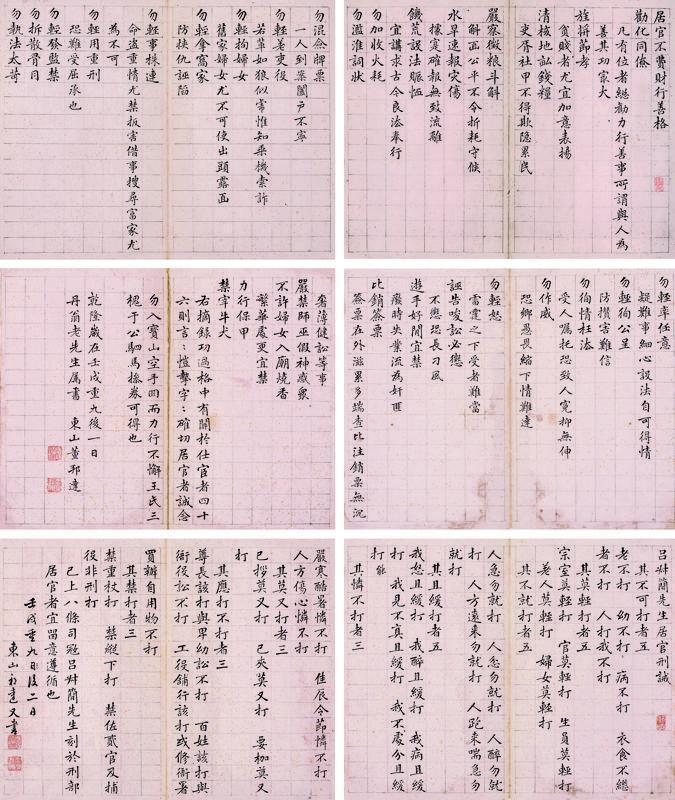 居官不費財行善格
勸化同僚
凡有位者總勸力行善事所謂與人為
善其功冣大
旌揚節孝
貧賤者尤宜加意表揚
清核地畝錢糧
吏胥社甲不得欺隱累民
嚴察徵粮斗斛
斛面公平不令折耗守候
水旱速報灾傷
據寔確報無致流離
饑荒設法賑恤
宜講求古今良法奉行
勿加收火耗
勿濫准詞狀
勿混僉牌票
一人到案闔戶不寧
勿輕差吏役
若輩如狼似常惟知乘機索詐
勿輕拘婦女
舊家婦女尤不可使出頭露面
勿輕拿富家
防挾仇誣陷
勿輕事株連
命盗重情尤禁扳害借事搜尋富家尤
為不可
勿輕用重刑
恐難受屈承也
勿輕發監禁
勿拆散骨肉
勿執法太苛
勿輕率任意
疑難事細心設法自可得情
勿輕狥公呈
防攢害難信
勿狥情枉法
受人囑托恐致人寃抑無伸
勿作威
恐鄉愚畏縮下情難達
勿輕恕
雷霆之下受者難當
誣告唆訟必懲
不應恐長刁風
遊手好閒宜禁
廢時失業流為奸匪
比銷簽票
簽票在外滋累多端查比注銷票無沉
奢薄健訟等事
嚴禁師巫假神惑衆
不許婦女入廟燒香
繁華處更宜禁
力行保甲
禁宰牛犬
右摘錄功過格中有關於仕宦者四十
六則言:愷摯字:確切居官者誠念
勿入寶山空手囬而力行不懈王氏三
槐于公駟馬操劵可得也
乾隆嵗在壬戌重九後一日
丹翁老先生属書 東山董邦達
呂叔簡先生居官刑誡
其不可打者五
老不打 幼不打 病不打 衣食不繼
者不打 人打我不打
其莫輕打者五
宗室莫輕打 官莫輕打 生員莫輕打
差人莫輕打 婦女莫輕打
其不就打者五
人急勿就打 人忿勿就打 人醉勿就
打 人方遠来勿就打 人跑来喘急勿
就打
其且緩打者五
我怒且緩打 我醉且緩打 我病且緩
打 我見不真且緩打 我不處分且緩
打
其憐不打者三
嚴寒酷暑憐不打 佳辰令節憐不打
人方傷心憐不打
其莫又打者三
已拶莫又打 已夾莫又打 要枷莫又
打
其應打不打者三
尊長該打與卑幼訟不打 百姓該打與
衙役訟不打 工役鋪行該打或修衙署
買辦自用物不打
其禁打者三
禁重杖打 禁從下打 禁佐貳官及捕
役非刑打
已上八條司冦呂叔簡先生刻於刑部
居官者宜留意遵循也
壬戌重九日後二日
東山邦達又書